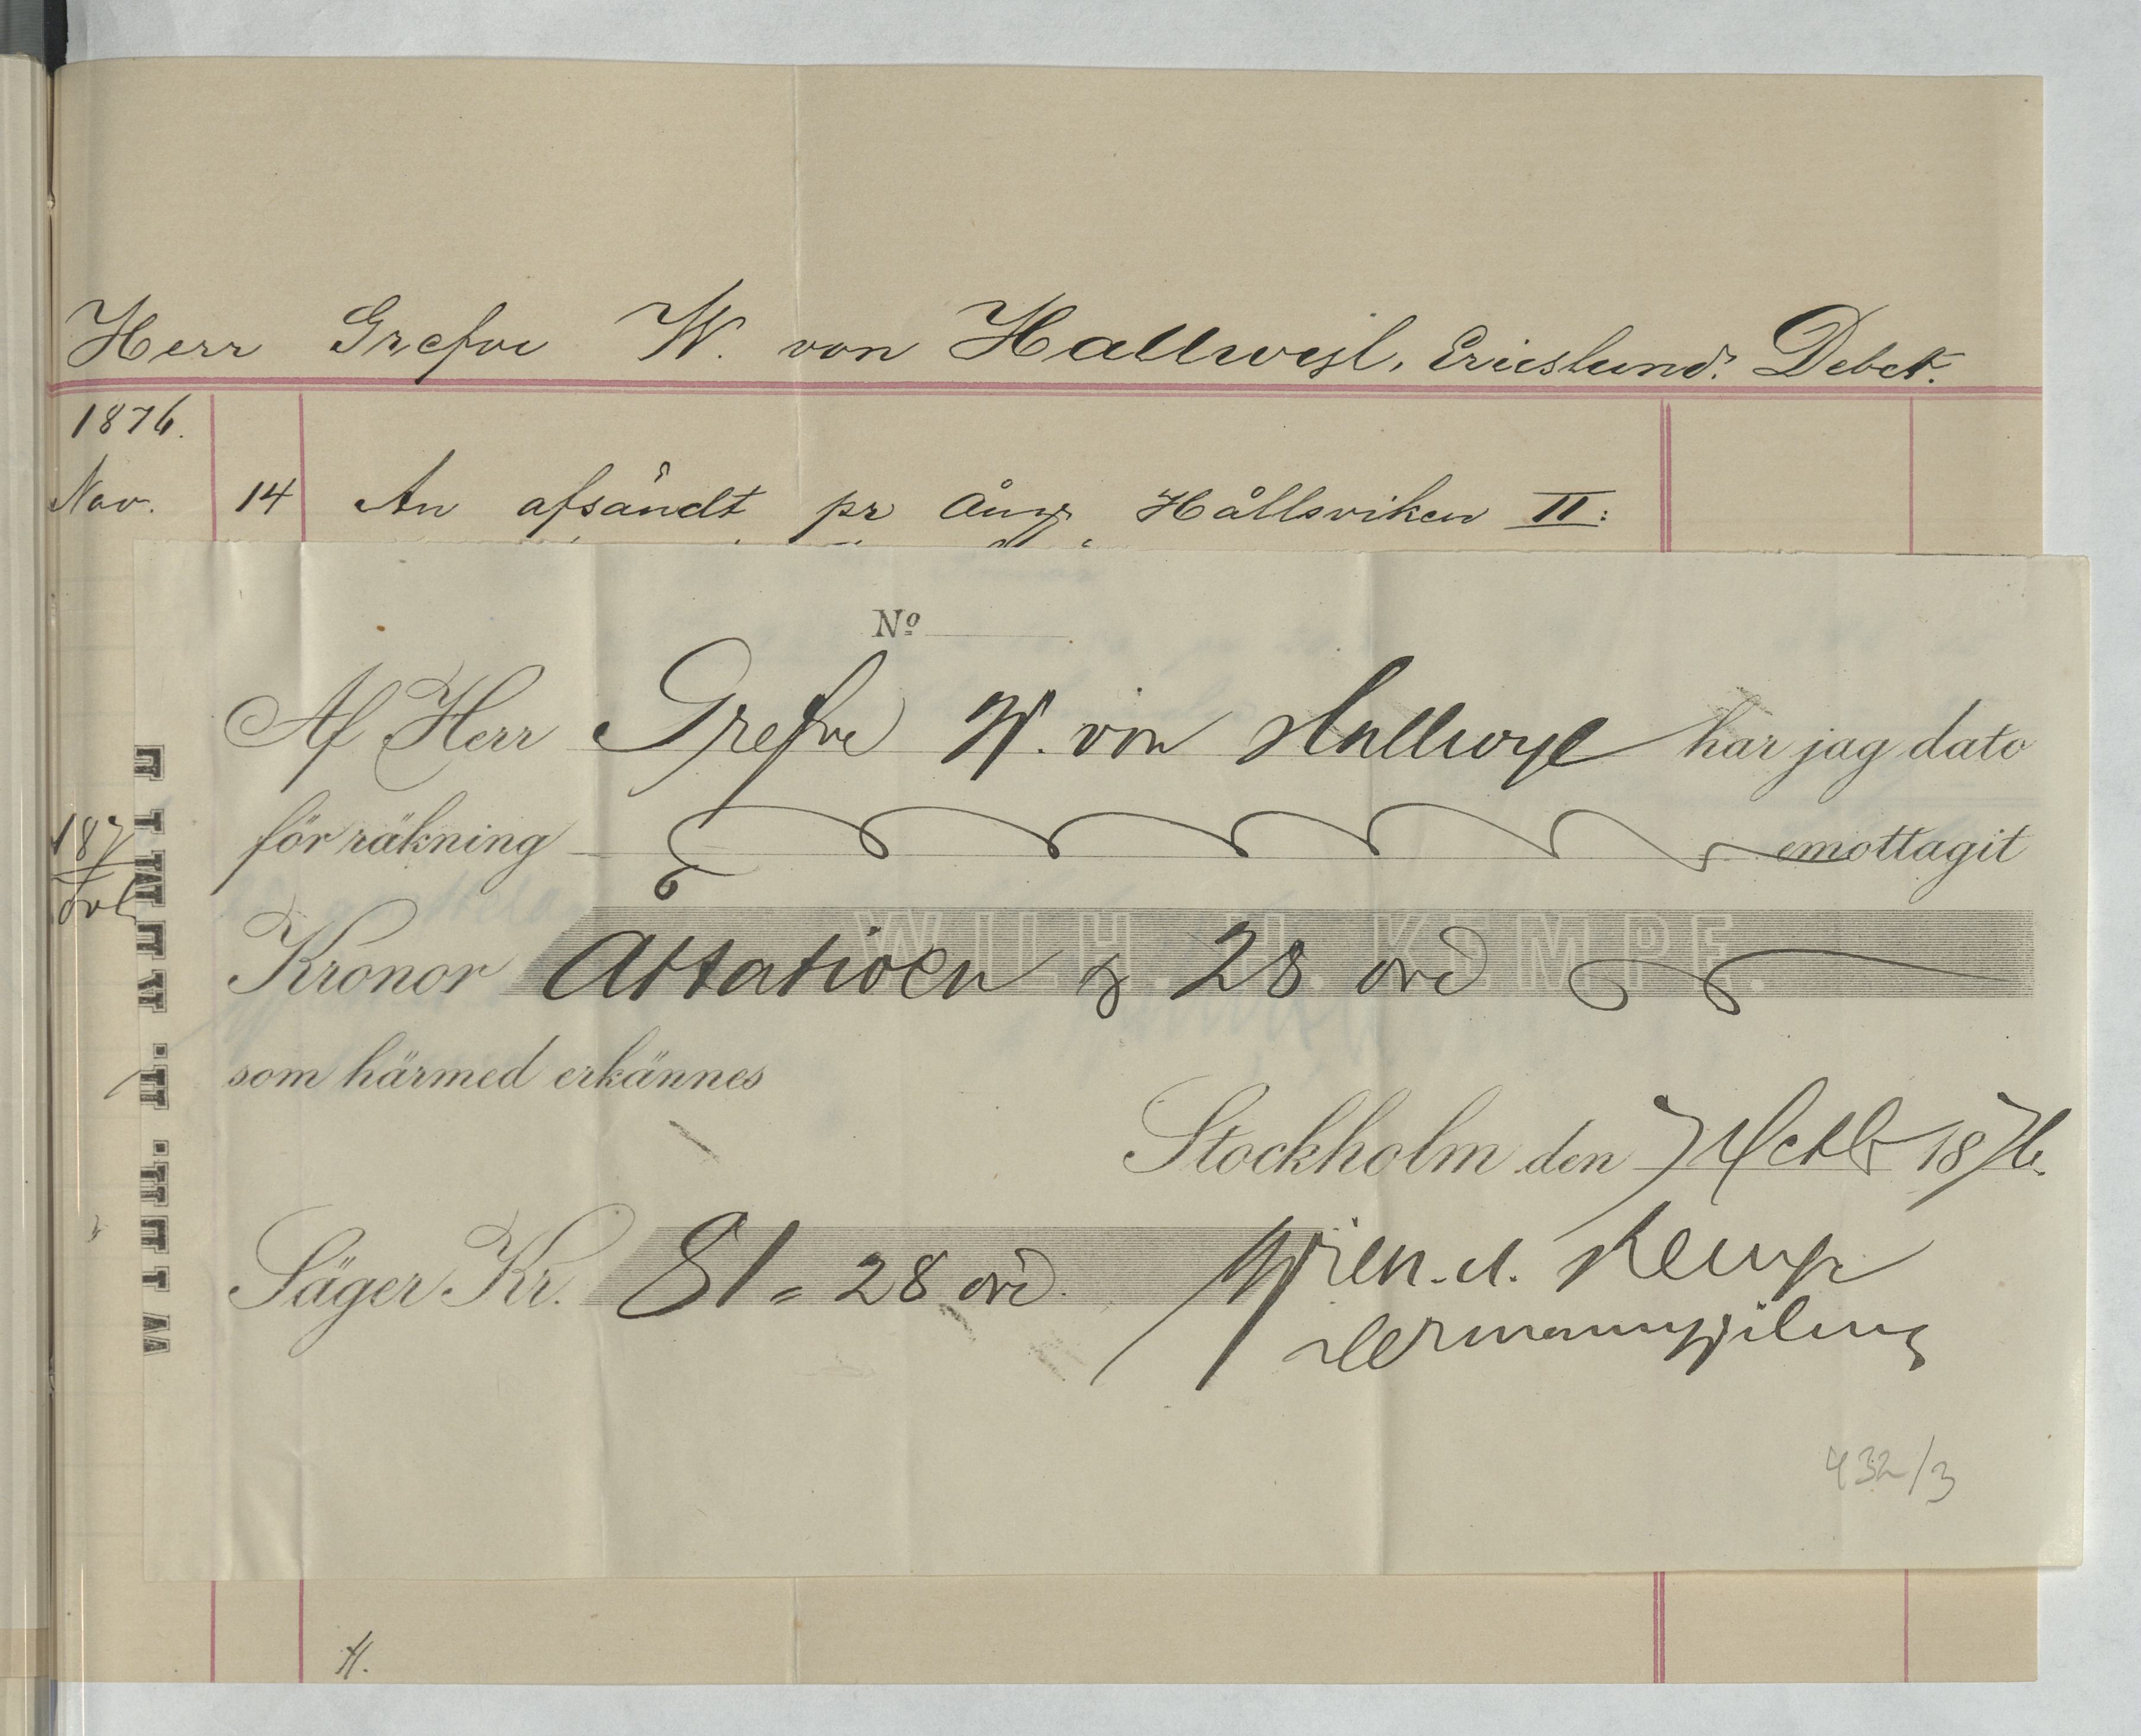 Herr Grefve W. von Hallwyl, Ericslund. Debet.
1876.
Nov. 14 An afsändt pr Ång. Hållsviken II:
Nº
Af Herr Grefve W. von Hallwyl har jag dato
för räkning emottagit
WILH. H. KEMPE.
Kronor Åttatioen & 28 öre
som härmed erkännes
Stockholm den 7 Octb 1876.
Säger Kr. 81 = 28 öre. Wilh. H. Kempe
432/3
H.